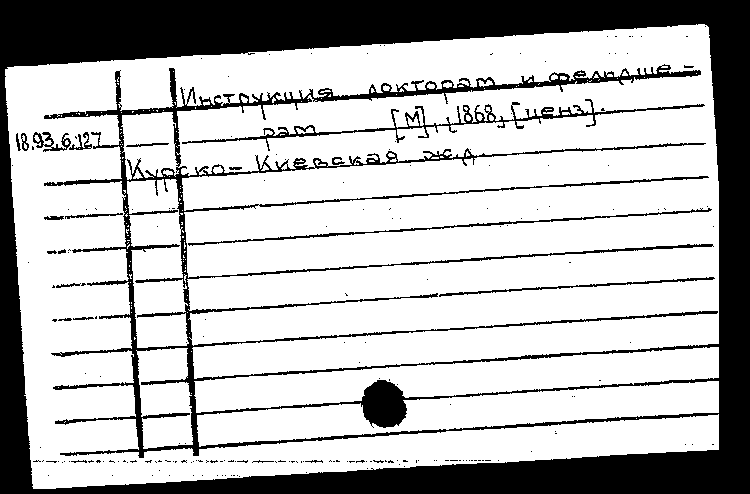 Инструкция докторам и фельдше-
рам [М], [1868, [ценз].
18.93.6.127
Курско-Киевская ж.д.